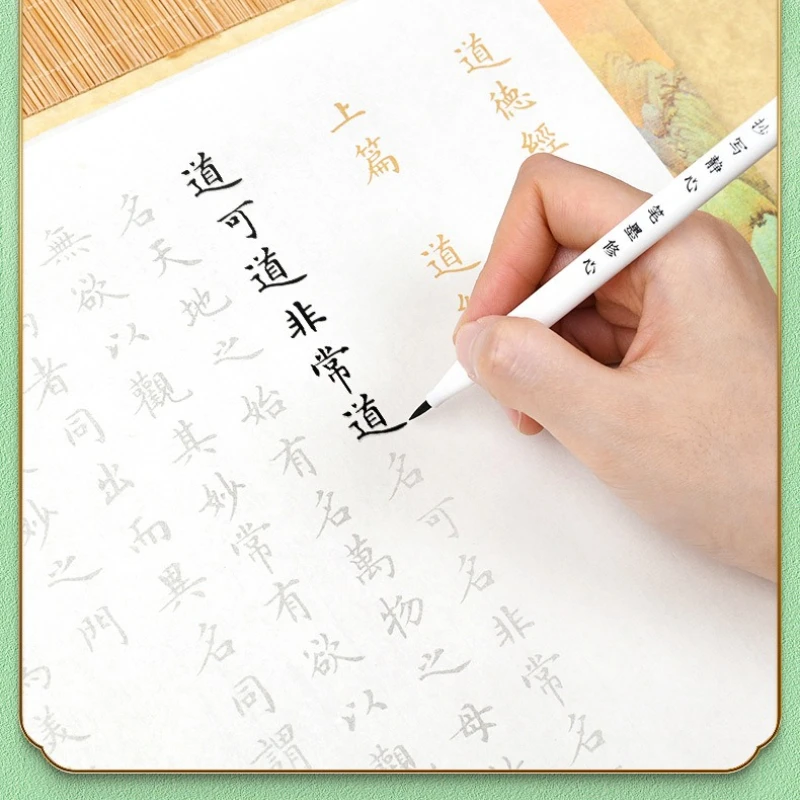 道德經
上篇 道
道可道非常道名可名非常名
名天地之始有名萬物之母
無欲以觀其妙常有欲以觀
者同出而異名同謂
妙之門
美
抄写静心 笔墨修心